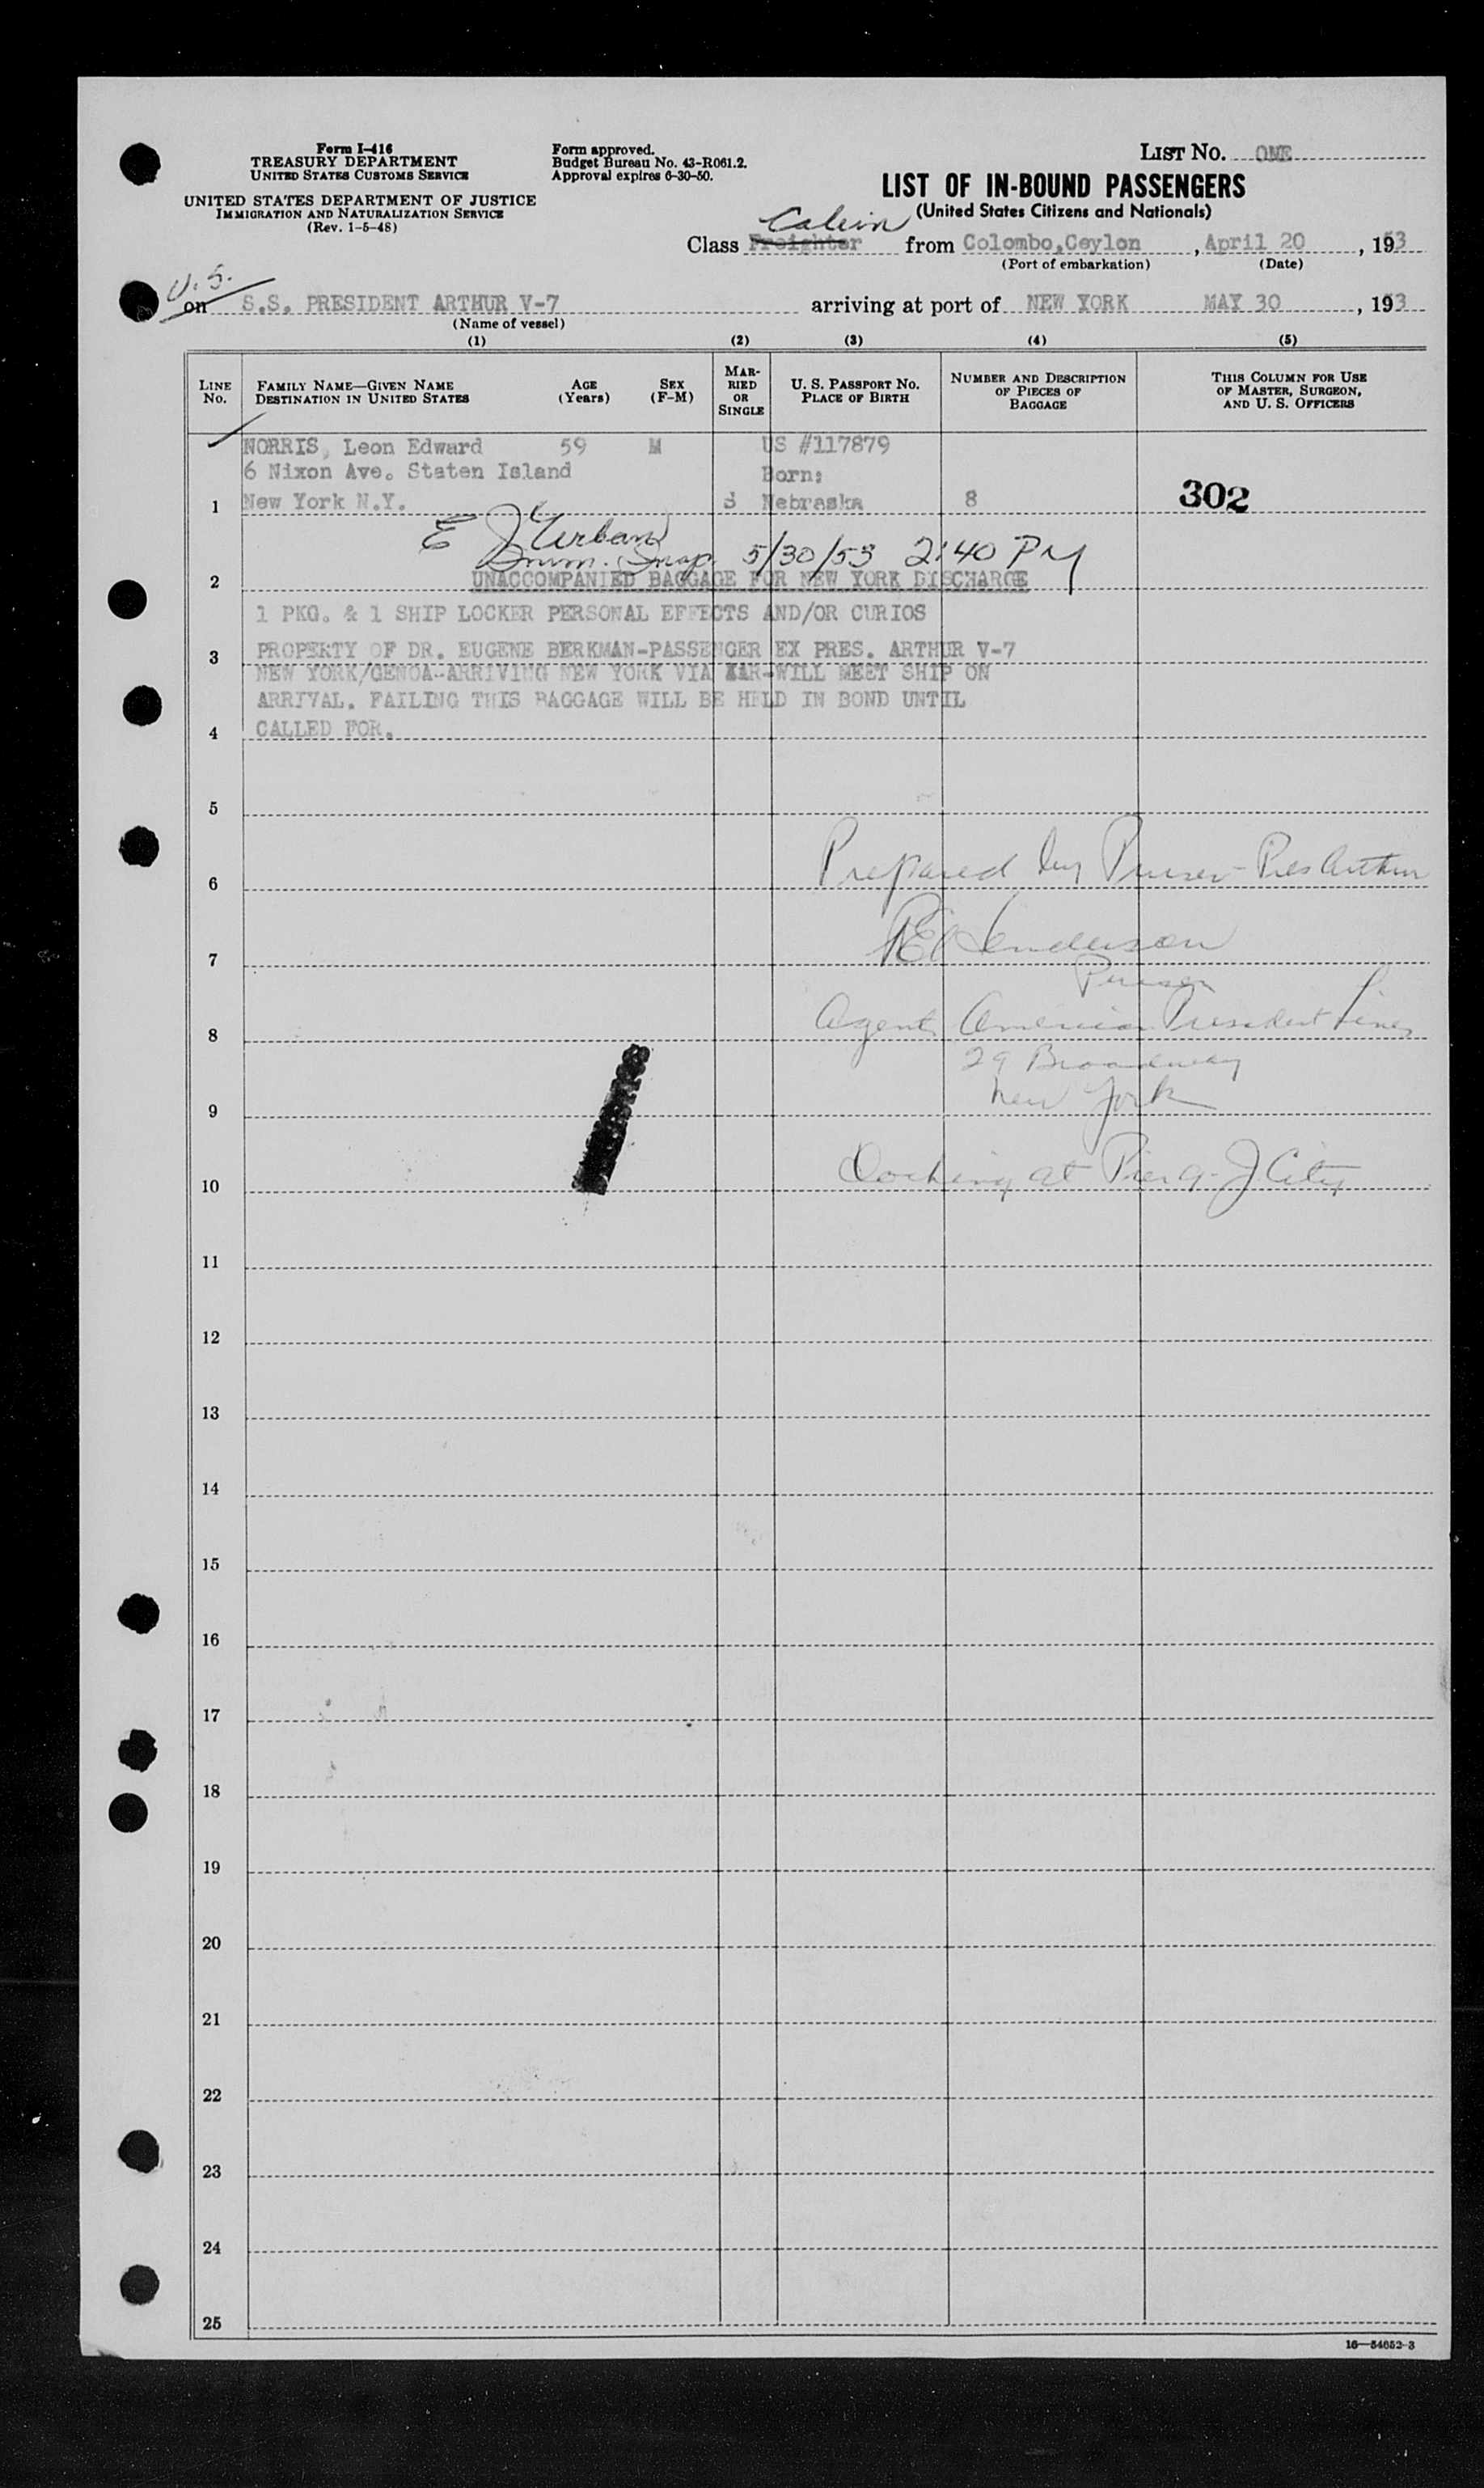 Form I-416
TREASURY DEPARTMENT
UNITED STATES CUSTOMS SERVICE
UNITED STATES DEPARTMENT OF JUSTICE
IMMIGRATION AND NATURALIZATION SERVICE
(Rev. 1-5-48)
Form approved.
Budget Bureau No. 43-R061.2.
Approval expires 6-30-50.
LIST NO. ONE
LIST OF IN-BOUND PASSENGERS
(United States Citizens and Nationals)
Cabin
Class Freighter from Colombo,Ceylon, April 20, 1953
(Port of embarkation) (Date)
U.S.
on S.S. PRESIDENT ARTHUR V-7 arriving at port of NEW YORK MAY 30, 1953
(Name of vessel)
(1) (2) (3) (4) (5)
LINE NO. FAMILY NAME—GIVEN NAME DESTINATION IN UNITED STATES AGE (Years) SEX (F-M) MARRIED OR SINGLE U. S. PASSPORT NO. PLACE OF BIRTH NUMBER AND DESCRIPTION OF PIECES OF BAGGAGE THIS COLUMN FOR USE OF MASTER, SURGEON, AND U. S. OFFICERS
NORRIS, Leon Edward 59 M US #117879
6 Nixon Ave. Staten Island Born:
1 New York N.Y. S Nebraska 8 302
E J Urban
Imm. Insp. 5/30/53 2:40 PM
2 UNACCOMPANIED BAGGAGE FOR NEW YORK DISCHARGE
1 PKG. & 1 SHIP LOCKER PERSONAL EFFECTS AND/OR CURIOS
3 PROPERTY OF DR. EUGENE BERKMAN-PASSENGER EX PRES. ARTHUR V-7
NEW YORK/GENOA-ARRIVING NEW YORK VIA AIR-WILL MEET SHIP ON
ARRIVAL. FAILING THIS BAGGAGE WILL BE HELD IN BOND UNTIL
4 CALLED FOR.
5
Prepared by Purser - Pres Arthur
6
Henderson
7
Purser
Agents American President Lines
8
29 Broadway
New York
9
Docking at Pier 9 - J. City
10
11
12
13
14
15
16
17
18
19
20
21
22
23
24
25
16—54652-3